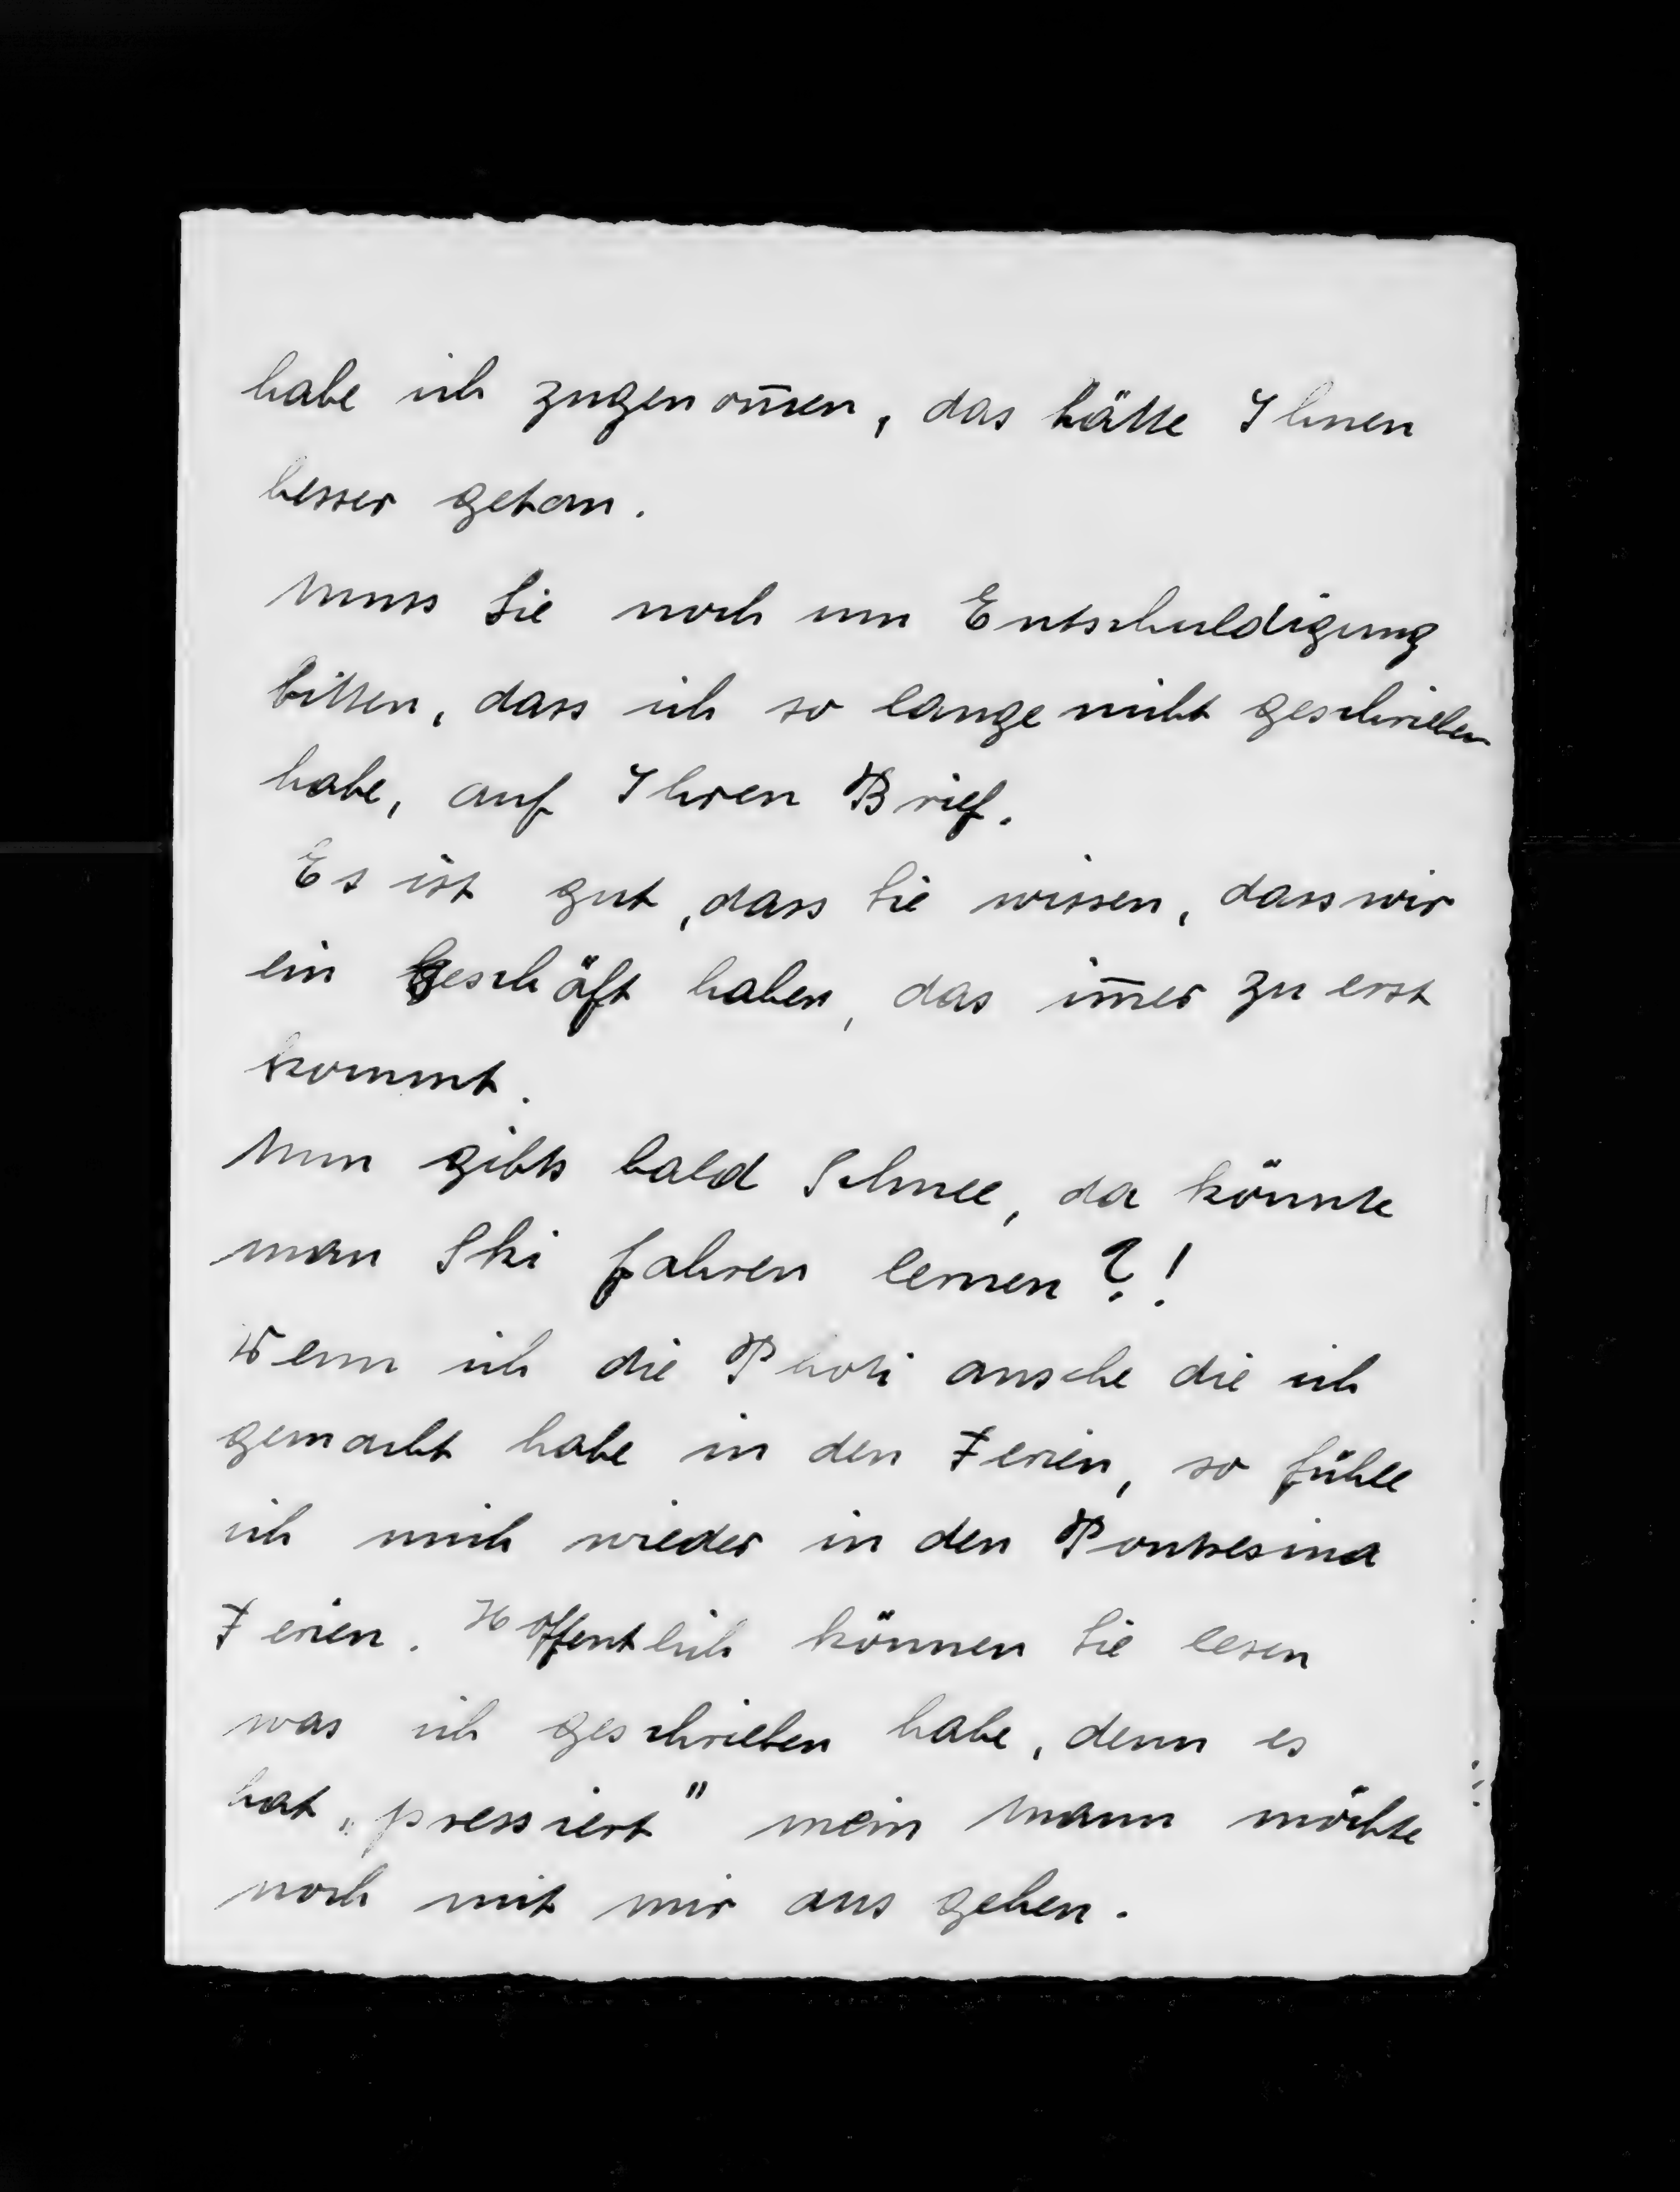 habe ich zugenom̅en, das hätte Ihnen
besser getan.
Muss Sie noch um Entschuldigung
bitten, dass ich so lange nicht geschrieben
habe, auf Ihren Brief.
Es ist gut, dass Sie wissen, dass wir
ein Geschäft haben, das im̅er zu erst
kommt.
Nun gibts bald Schnee, da könnte
man Ski fahren lernen?!
Wenn ich die Photi ansehe die ich
gemacht habe in den Ferien, so fühle
ich mich wieder in den Pontresina
Ferien. Hoffentlich können Sie lesen
was ich geschrieben habe, denn es
hat „pressiert" mein Mann möchte
noch mit mir aus gehen.